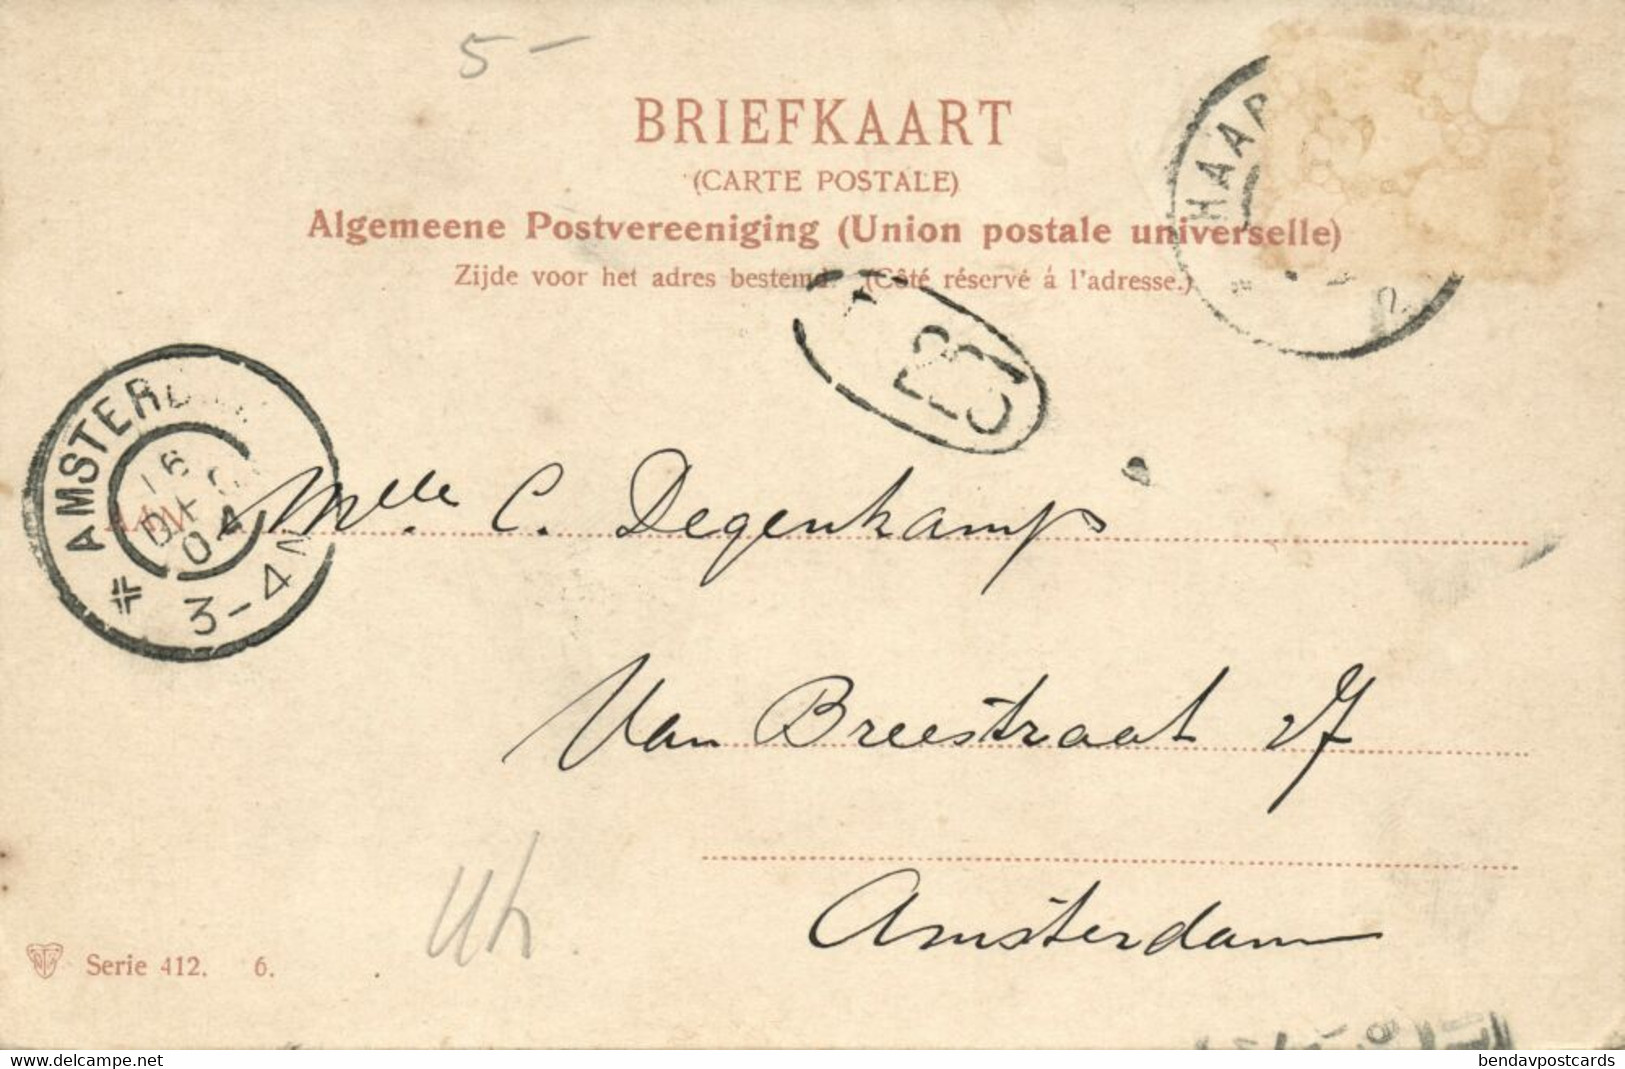 5 –
BRIEFKAART
(CARTE POSTALE)
Algemeene Postvereeniging (Union postale universelle)
Zijde voor het adres bestemd. (Côté réservé á l'adresse.)
HAAR
AMSTERDAM
16
04
3-4N
Mlle. C. Degenkamp
Van Breestraat
Amsterdam
Serie 412. 6.
bendavpostcards